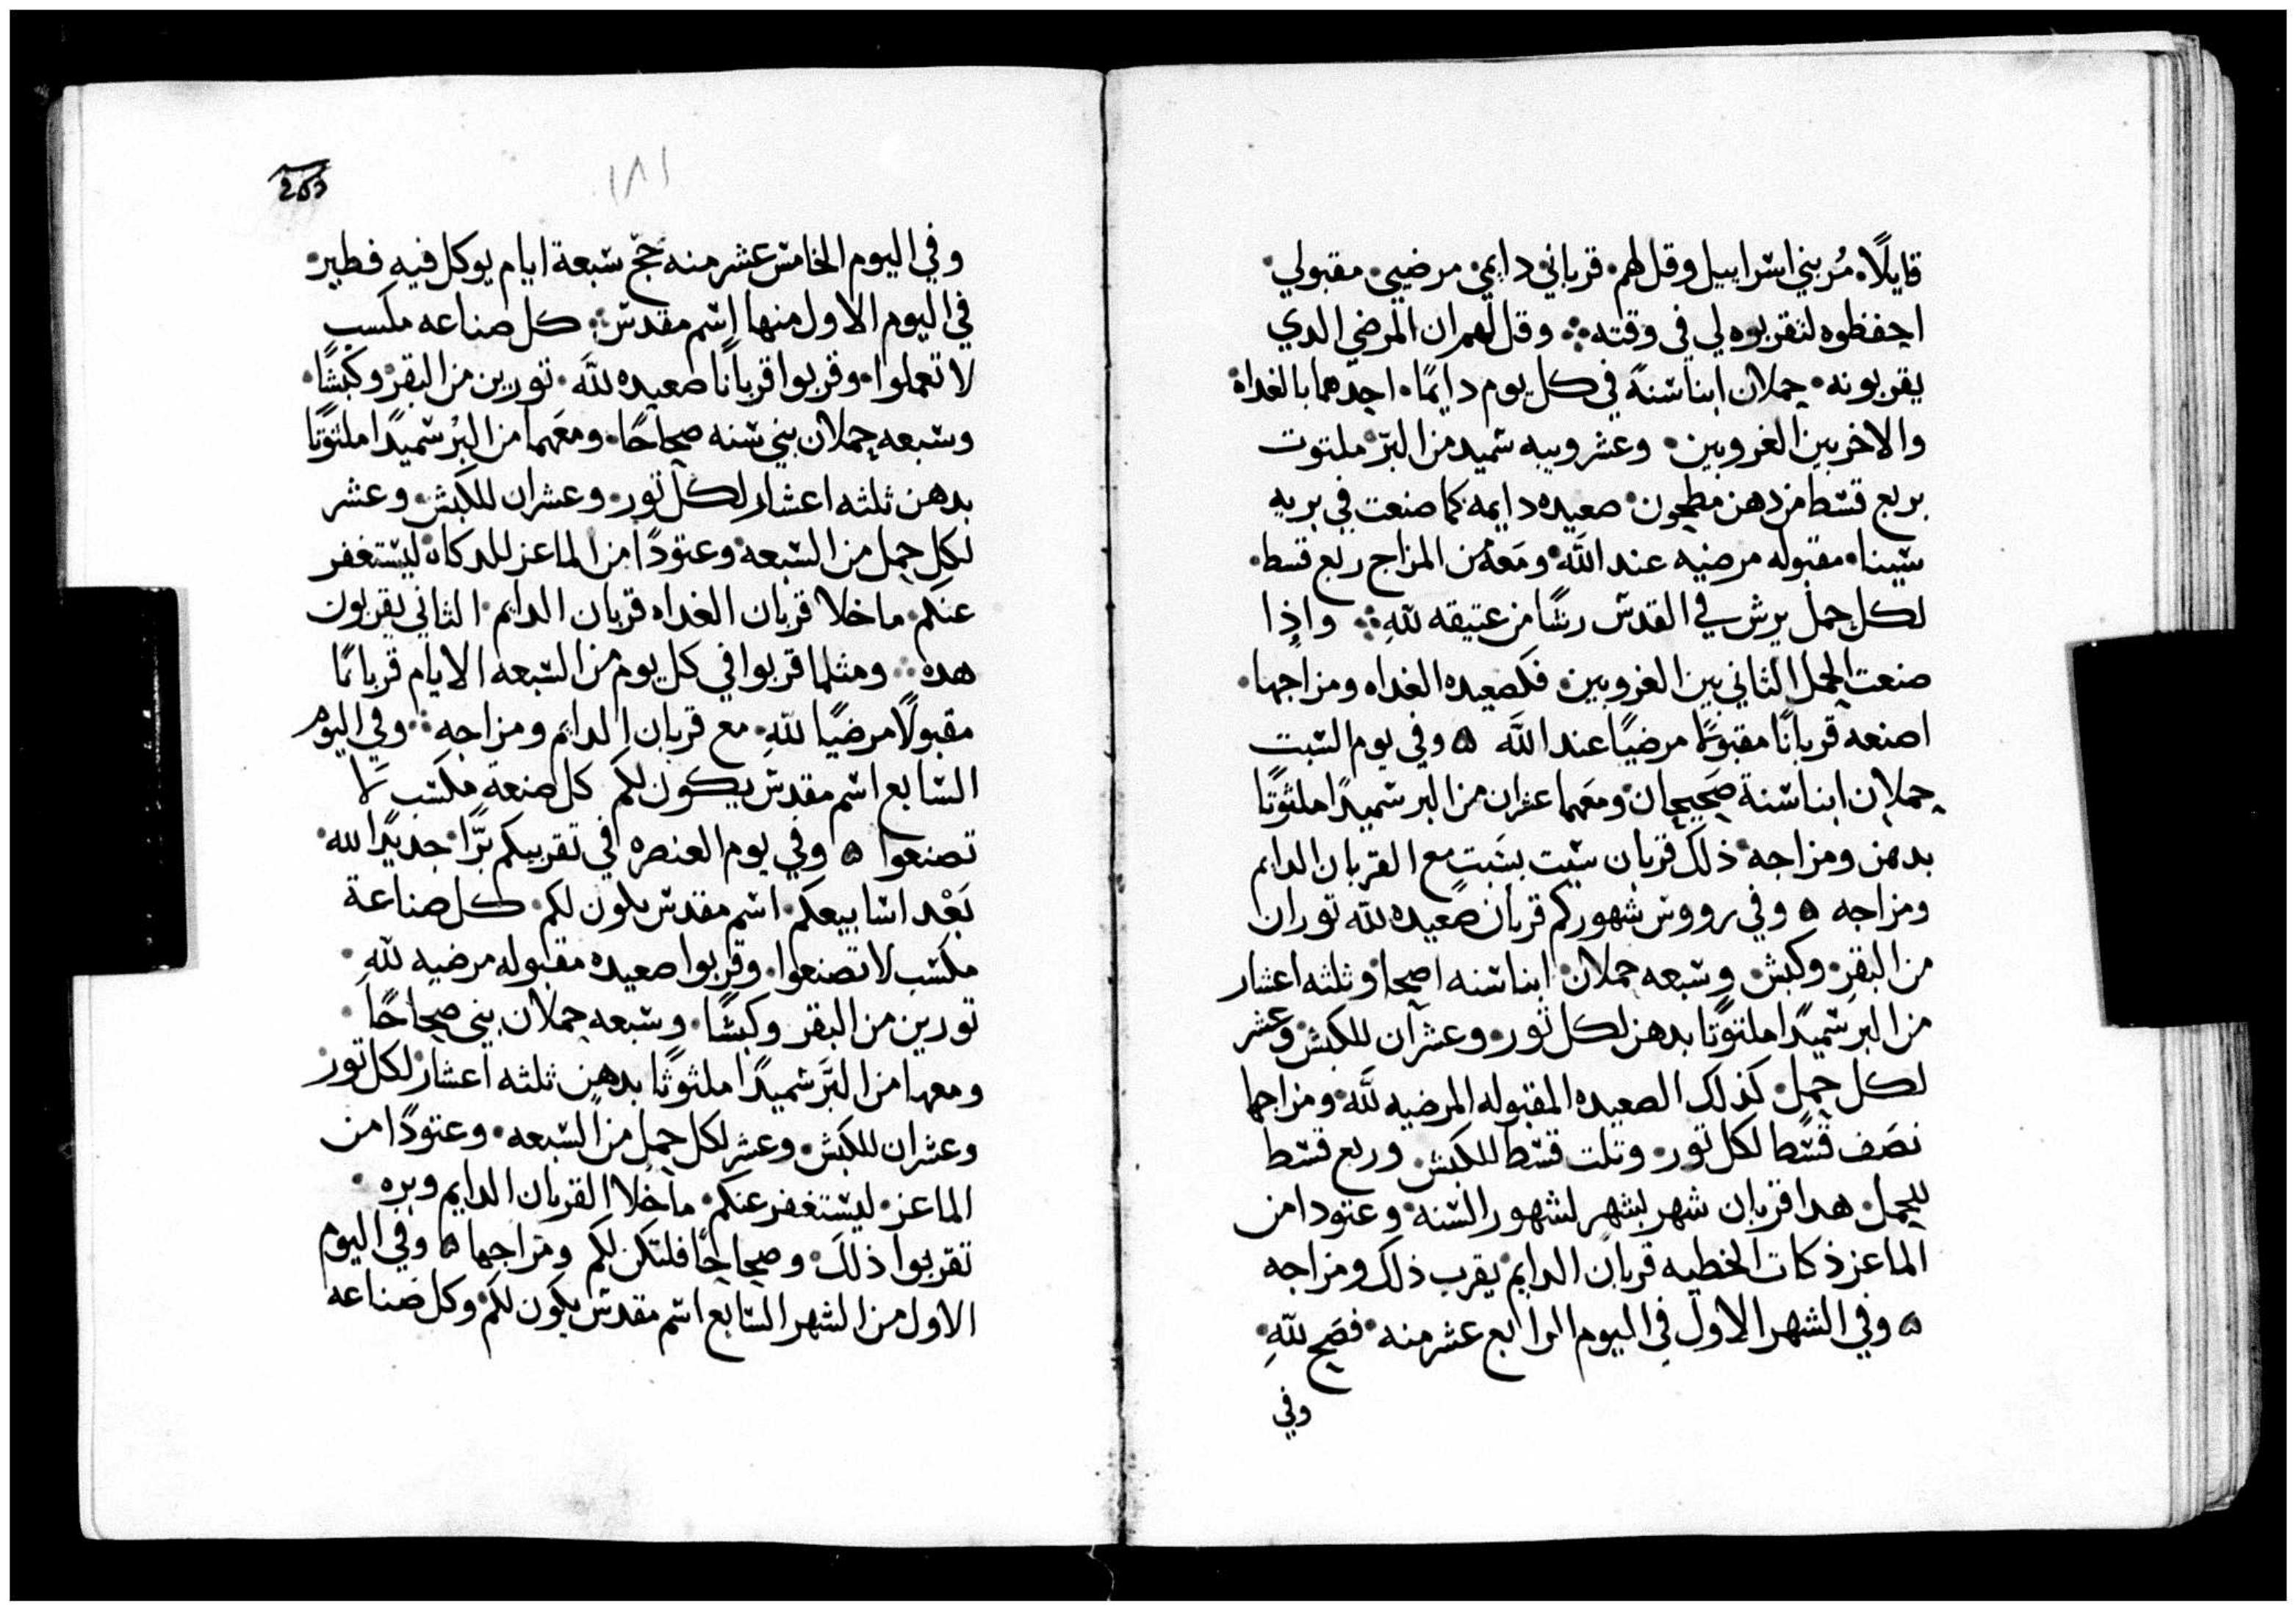 قايلًا. مُر بني اسراييل وقل لهم. قرباني دايمي. مرضيي. مقبولي.
احفظوه لتقربوه لي في وقته ⁘ وقل لهم ان المرضي الدي
يقربونه. حملان ابنا سنةً في كل يوم دايمًا. احدهما بالغداة
والاخر بين الغروبين. وعشر ويبه سميد من البرّ ملتوت
بربع قسط من دهن مطحون. صعيده دايمه كما صنعت في بريه
سينا. مقبوله مرضيه عند اللَّه ومَعَهُ من المزاج ربع قسط.
لكل حمل يرش في القدس رشًا من عتيقه للّهِ ⁘ واذا
صنعت الحمل الثاني بين الغروبين. فكصعيده الغداه ومزاجها.
اصنعه قربانًا مقبولًا مرضيًا عند اللَّه ۵ وفي يوم السبت
حملان ابنا سنة صَحيحان ومعَهما عشران من البر سميدًا ملتوتًا
بدهن ومزاجه. ذلك قربان سبت بسَبتٍ مع القربان الدايم
ومزاجه ۵ وفي رووس شهوركم قربان صعيده للّه توران
من البقر. وكبش. وسبعه حملان ابنا سنه اصحا وثلثه اعشار
من البر سميدًا ملتوتًا بدهن لكل ثور. وعشران للكبش وعشر
لكل حمل. كذلك الصعيده المقبوله المرضيه للَّه ومزاجها
نصَف قسًطا لكل تور. وتلت قسط للكبش. وربع قسط
للحمل. هدا قربان شهر بشهر لشهور السنه. وعتودا من
الماعز ذكات الخطيه قربان الدايم يقرب ذلك ومزاجه
۵ وفي الشهر الاول في اليوم الرابع عشر منه. فصَح للّهِ.
وفي
١٨١
وفي اليوم الخامس عشر منه حَجّ سبعة ايام يوكل فيه فطير.
في اليوم الاول منها اسم مقدس ⁘ كل صناعه مكسب
لا تعملوا. وقربوا قربانًا صعيده للَّه. تورين من البقر. وكبشًا.
وسبعه حملان بني سنه صحاحًا. ومعَهما من البرُ سميدًا ملتوتًا
بدهن ثلثه اعشار لكل تور. وعشران للكبش. وعشر
لكل حمل من السبعه. وعتودًا من الماعز للدكاة ليستغفر
عنكم. ما خلا قربان الغداه قربان الدايم. الثاني يقربون
هده ⁘ ومثلها قربوا في كل يوم من السبعه الايام قربانًا
مقبولًا مرضيًا للّهِ. مع قربان الدايَم ومزاجه ⁘ وفي اليوم
السابع اسم مقدس يكون لكم كل صنعةِ مكسَب لَا
تصنعوا ۵ وفي يوم العنصره في تقريبكم برًّا جديدًا لله.
بَعْد اسابيعكم. اسم مقدس يكون لكم. كل صناعة
مكسب لا تصنعوا. وقربوا صعيده مقبوله مرضيه للّهِ.
تورين من البقر وكبشًا. وسبعه حملان بني صحاحًا.
ومعهما من البَر سميدًا ملتوتًا بدهن ثلثه اعشار لكل تور
وعشران للكبش. وعشر لكل حمل من السبعه. وعتودًا من
الماعز. ليستغفر عنكم. ما خلا القربان الدايم وبره.
تقربوا ذلكَ. وصحاحًا فلتكن لكم ومزاجها ۵ وفي اليوم
الاول من الشهر السابع اسم مقدس يكون لكم. وكل صناعه